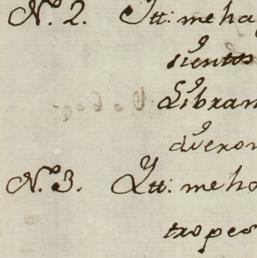 N.º 2. Ytt: me ha
sientos
Libran
dieron
N.º 3. Ytt: me ha
tro pes